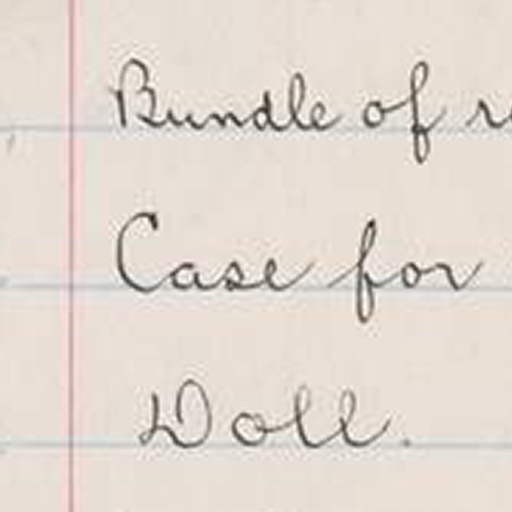 Bundle of
Case for
Doll.